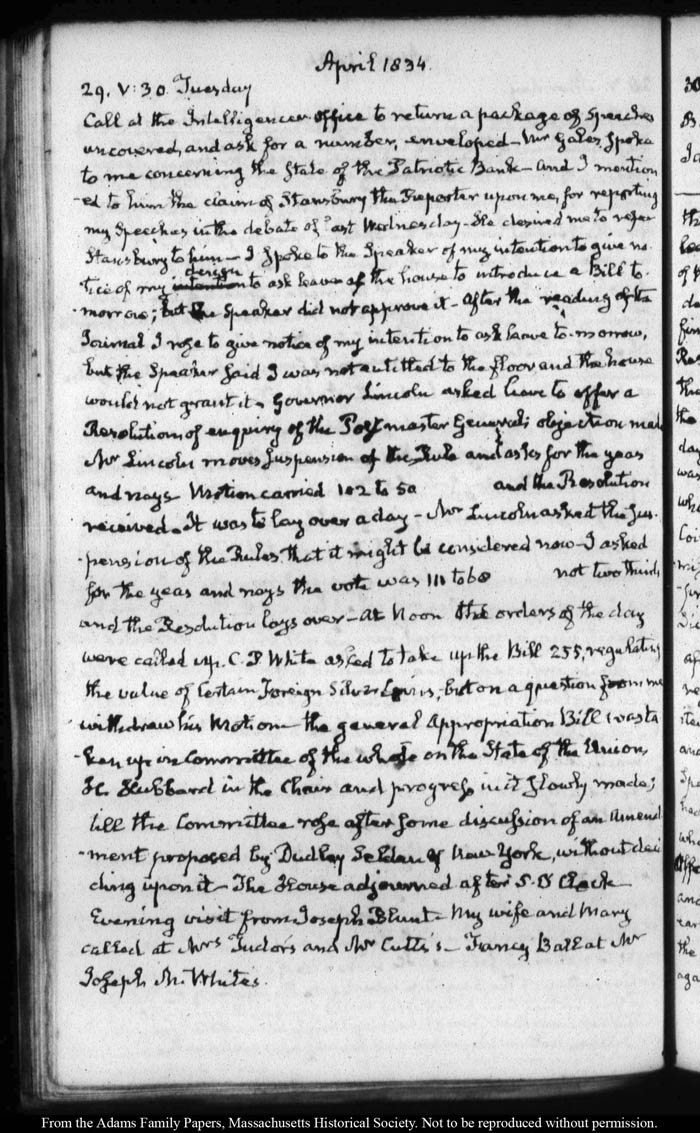 April 1834.
29. V:30. Tuesday
Call at the Intelligencer office to return a package of Speeches
uncovered, and ask for a number, enveloped – Mr Gales spoke
to me concerning the State of the Patriotic Bank – and I mention
-ed to him the claim of Stansbury the Reporter upon me, for reporting
my Speeches in the debate of last Wednesday – He desired me to refer
Stansbury to him – I spoke to the Speaker of my intention to give no-
design
tice of my intention to ask leave of the house to introduce a Bill to-
morrow; but the Speaker did not approve it – After the reading of the
Journal I rose to give notice of my intention to ask leave to-morrow,
but the Speaker said I was not entitled to the floor, and the house
would not grant it. Governor Lincoln asked leave to offer a
Resolution of enquiry of the Post master General; objection made
Mr Lincoln moves suspension of the Rule and asks for the yeas
and nays Motion carried 102 to 50 and the Resolution
received. It was to lay over a day – Mr Lincoln asked the Sus-
pension of the Rules that it might be considered now – I asked
for the yeas and nays the vote was 111 to 60 not two thirds
and the Resolution lays over – At Noon the orders of the day
were called up. C. P. White asked to take up the Bill 255, regulating
the value of certain Foreign Silver Coins, but on a question from me
withdrew his Motion – the general Appropriation Bill was ta-
ken up in Committee of the whole on the State of the Union,
H. Hubbard in the Chair and progress in it slowly made;
till the Committee rose after some discussion of an Amend
-ment proposed by Dudley Selden of New York, without deci
ding upon it – The House adjourned after 5. O'Clock
Evening visit from Joseph Blunt – My wife and Mary
called at Mrs Tudor's and Mr Cutts's – Fancy Ball at Mr
Joseph M. White's.
From the Adams Family Papers, Massachusetts Historical Society. Not to be reproduced without permission.